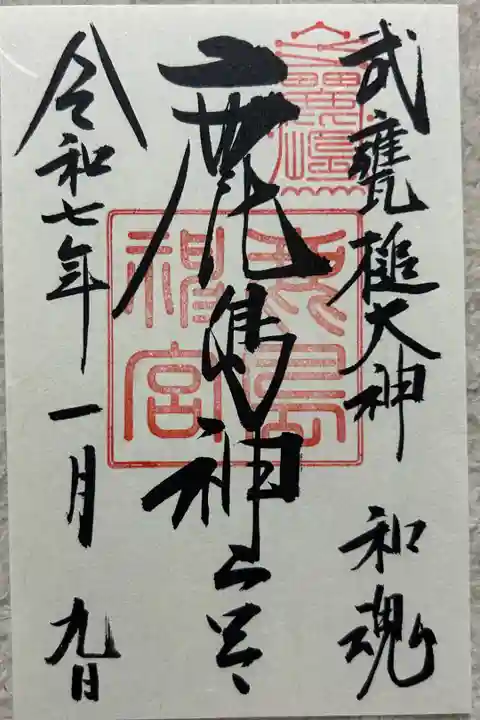 武甕槌大神 和魂
鹿島神宮
鹿島神宮
令和七年 一月 九日